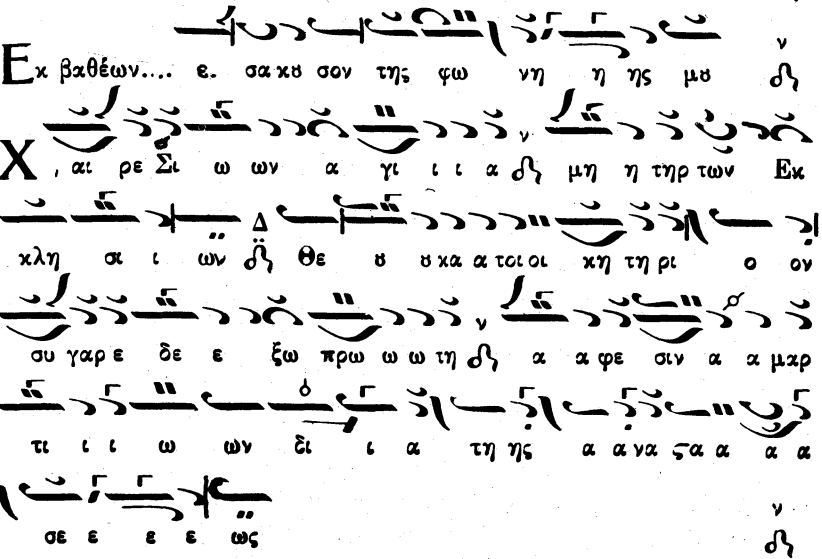 Εκ βαθέων.... ε. σα κȣ σον της φω νη η ης μȣ
Χ, αι ρε Σι ω ων α γι ι ι α μη η τηρ των Εκ
κλη σι ι ων Θε ȣ ȣ κα α τοι οι κη τη ρι ο ον
συ γαρ ε δε ε ξω πρω ω ω τη α α φε σιν α α μαρ
τι ι ι ω ων δι ι α τη ης α α να ϛα α α α
σε ε ε ε ως